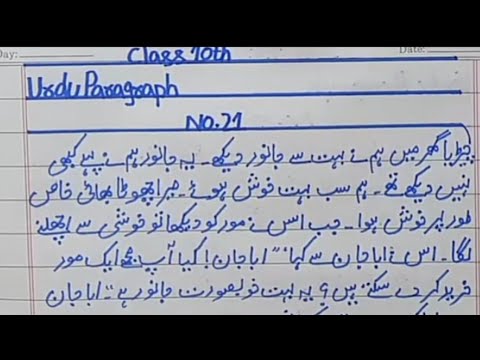 Day:
Date:
Class 10th
Urdu Paragraph
No. 21
چڑیا گھر میں ہم نے بہت سے جانور دیکھے۔ یہ جانور ہم نے پہلے کبھی
نہیں دیکھے تھے۔ ہم سب بہت خوش ہوئے۔ میرا چھوٹا بھائی خاص
طور پر خوش ہوا۔ جب اس نے مور کو دیکھا تو خوشی سے اچھلنے
لگا۔ اس نے ابا جان سے کہا، "ابا جان! کیا آپ مجھے ایک مور
خرید کر دے سکتے ہیں؟ یہ بہت خوبصورت جانور ہے"۔ ابا جان